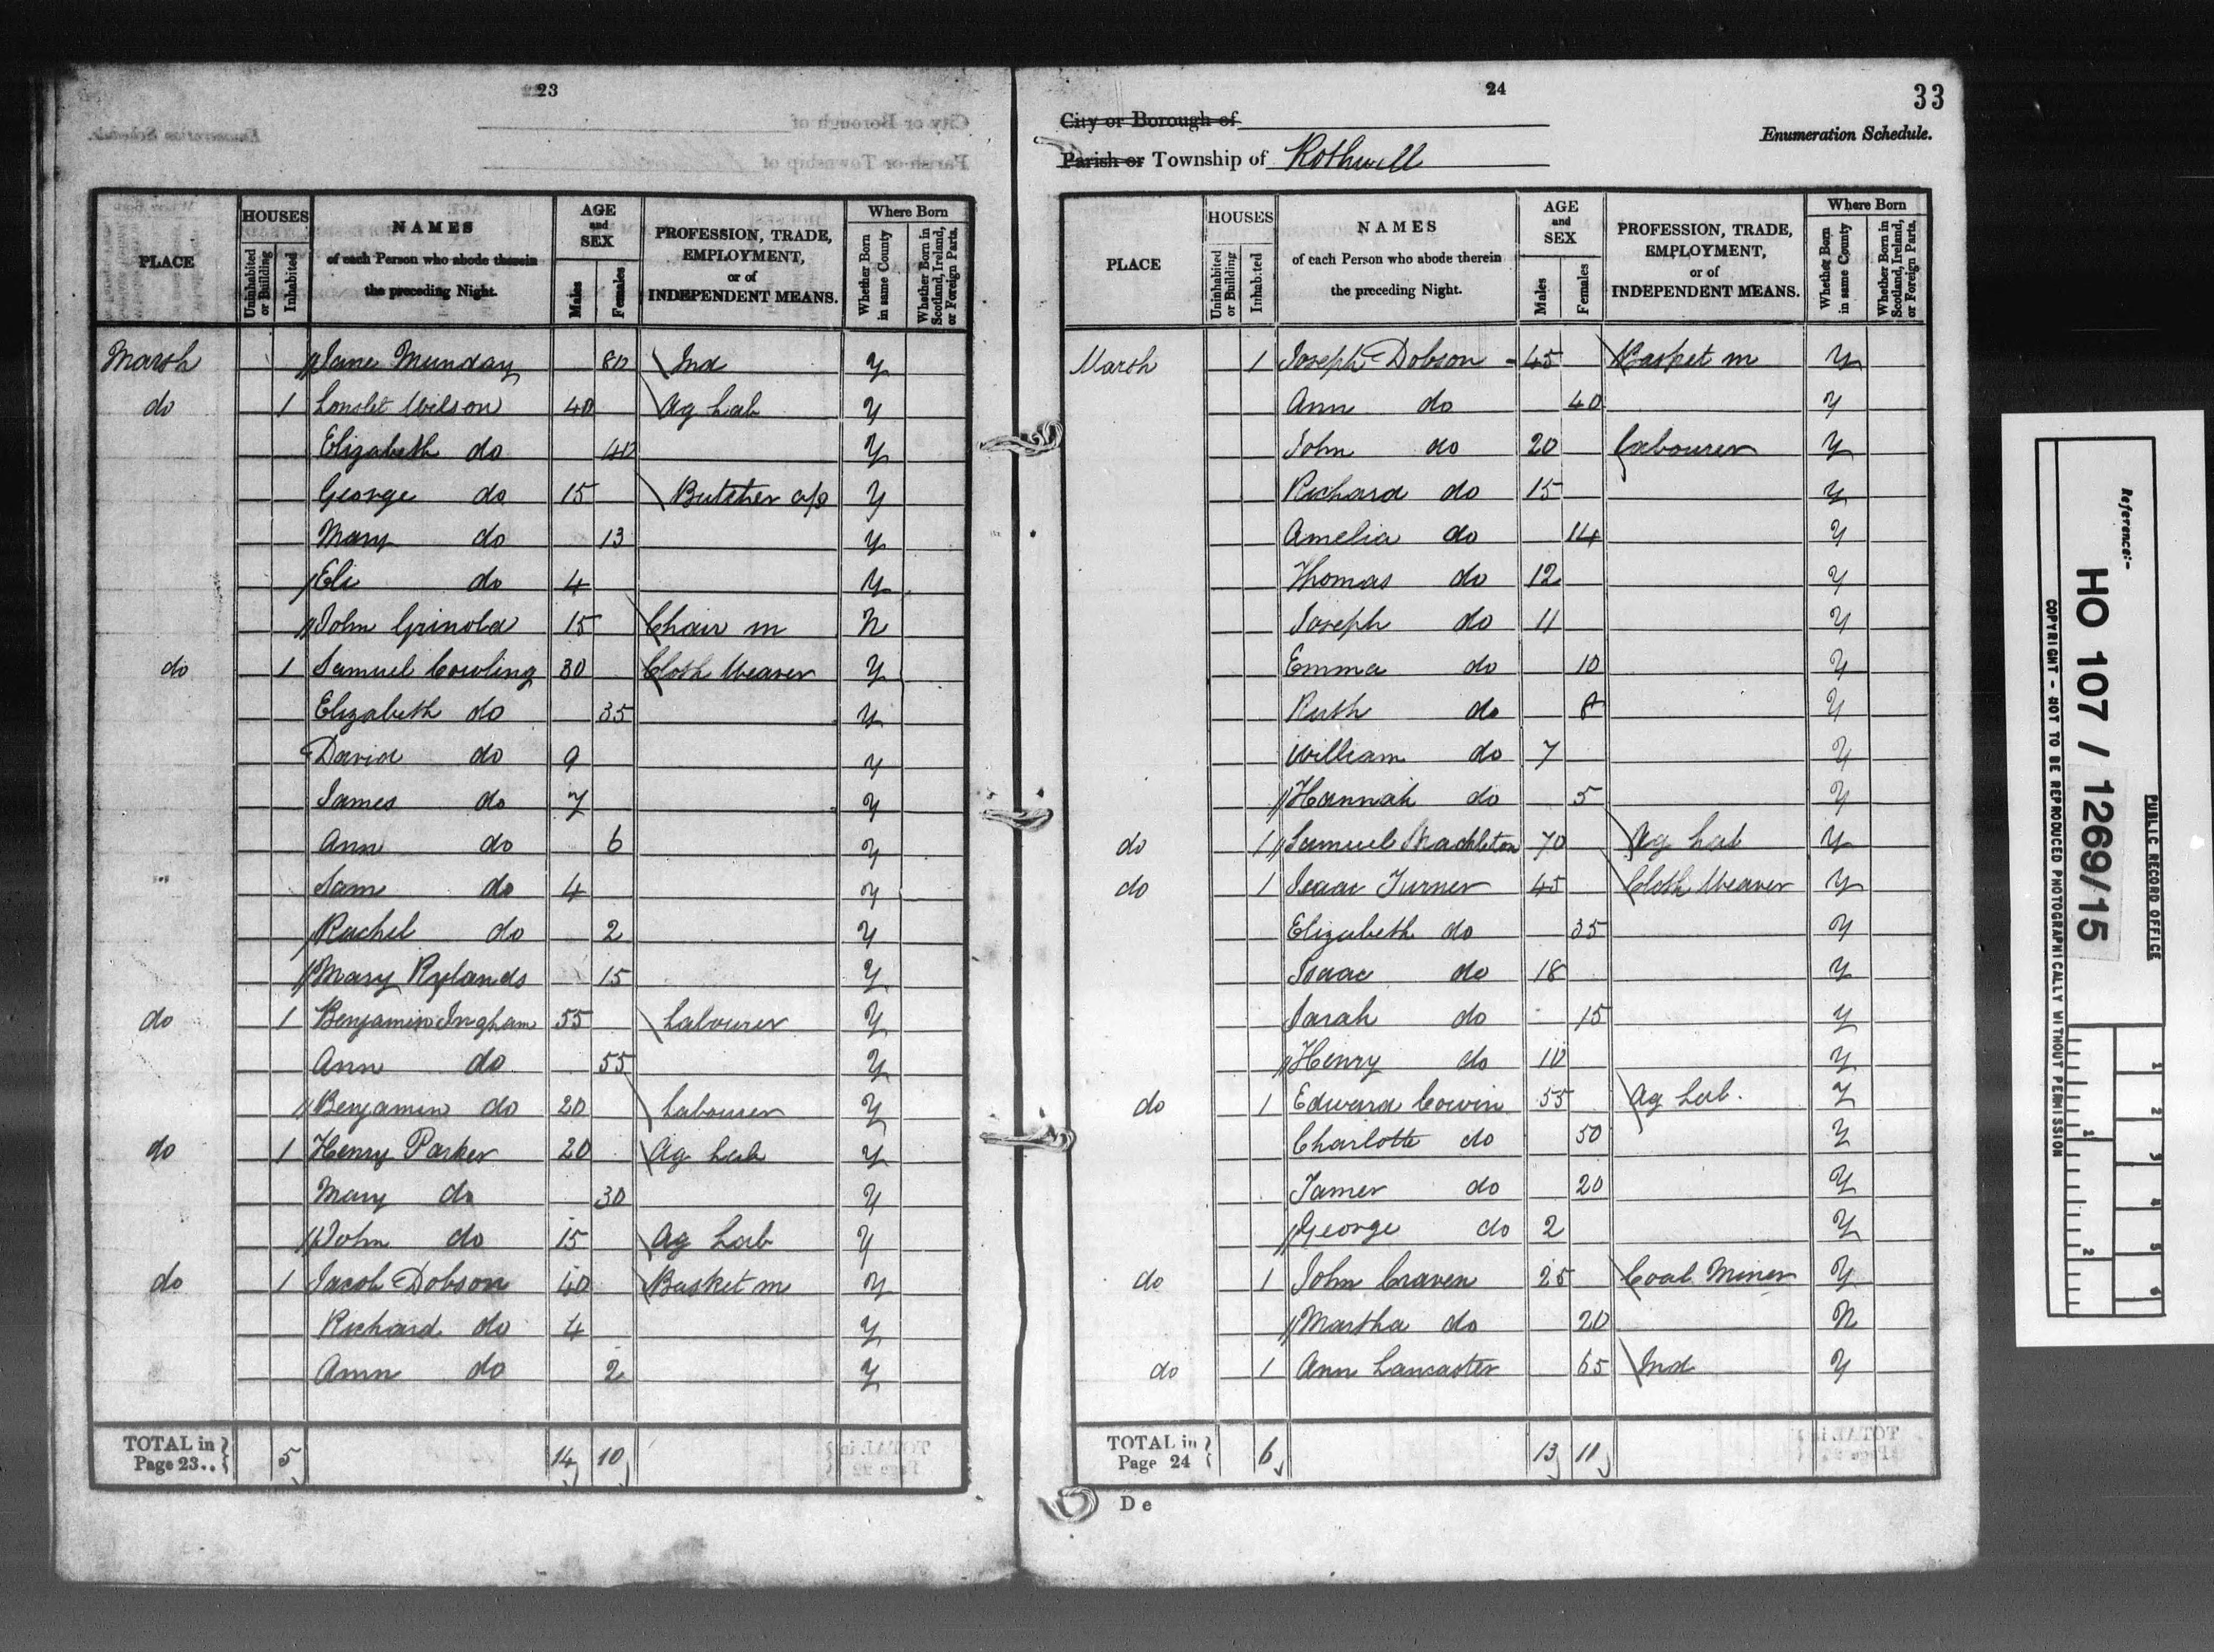 23
HOUSES
PLACE
Uninhabited or Building
Inhabited
NAMES
of each Person who abode therein
the preceding Night.
AGE
and
SEX
Males
Females
PROFESSION, TRADE,
EMPLOYMENT,
or of
INDEPENDENT MEANS.
Where Born
Whether Born in same County
Whether Born in Scotland, Ireland, or Foreign Parts.
Marsh Jane Munday 80 Ind Y
do 1 Wilson 40 Ag Lab Y
Elizabeth do 40 Y
George do 15 Butcher Y
Mary do 13 Y
Eli do 4 Y
John Grinold 15 Chair m N
do 1 Samuel Cowling 30 Cloth Weaver Y
Elizabeth do 35 Y
David do 9 Y
James do 7 Y
Ann do 6 Y
Sam do 4 Y
Rachel do 2 Y
Mary Rylands 15 Y
do 1 Benjamin Ingham 55 Labourer Y
Ann do 55 Y
Benjamin do 20 Labourer Y
do 1 Henry Parker 20 Ag Lab Y
Mary do 30 Y
John do 15 Ag Lab Y
do 1 Jacob Dobson 40 Basket m Y
Richard do 4 Y
Ann do 2 Y
TOTAL in
Page 23.. 5 14 10
24
33
City or Borough of
Enumeration Schedule.
Parish or Township of Rothwell
PLACE
HOUSES
Uninhabited or Building
Inhabited
NAMES
of each Person who abode therein
the preceding Night.
AGE
and
SEX
Males
Females
PROFESSION, TRADE,
EMPLOYMENT,
or of
INDEPENDENT MEANS.
Where Born
Whether Born in same County
Whether Born in Scotland, Ireland, or Foreign Parts.
Marsh 1 Joseph Dobson 45 Basket m Y
Ann do 40 Y
John do 20 Labourer Y
Richard do 15 Y
Amelia do 14 Y
Thomas do 12 Y
Joseph do 11 Y
Emma do 10 Y
Ruth do 8 Y
William do 7 Y
Hannah do 5 Y
do 1 Samuel 70 Ag Lab Y
do 1 Isaac Turner 45 Cloth Weaver Y
Elizabeth do 35 Y
Isaac do 18 Y
Sarah do 15 Y
Henry do 10 Y
do 1 Edward Cowin 55 Ag Lab. Y
Charlotte do 50 Y
Tamer do 20 Y
George do 2 Y
do 1 John Craven 25 Coal Miner Y
Martha do 20 N
do 1 Ann Lancaster 65 Ind Y
TOTAL in
Page 24 6 13 11
De
Reference:-
HO 107 / 1269/15
PUBLIC RECORD OFFICE
COPYRIGHT - NOT TO BE REPRODUCED PHOTOGRAPHICALLY WITHOUT PERMISSION
1
2
1
2
3
4
5
6